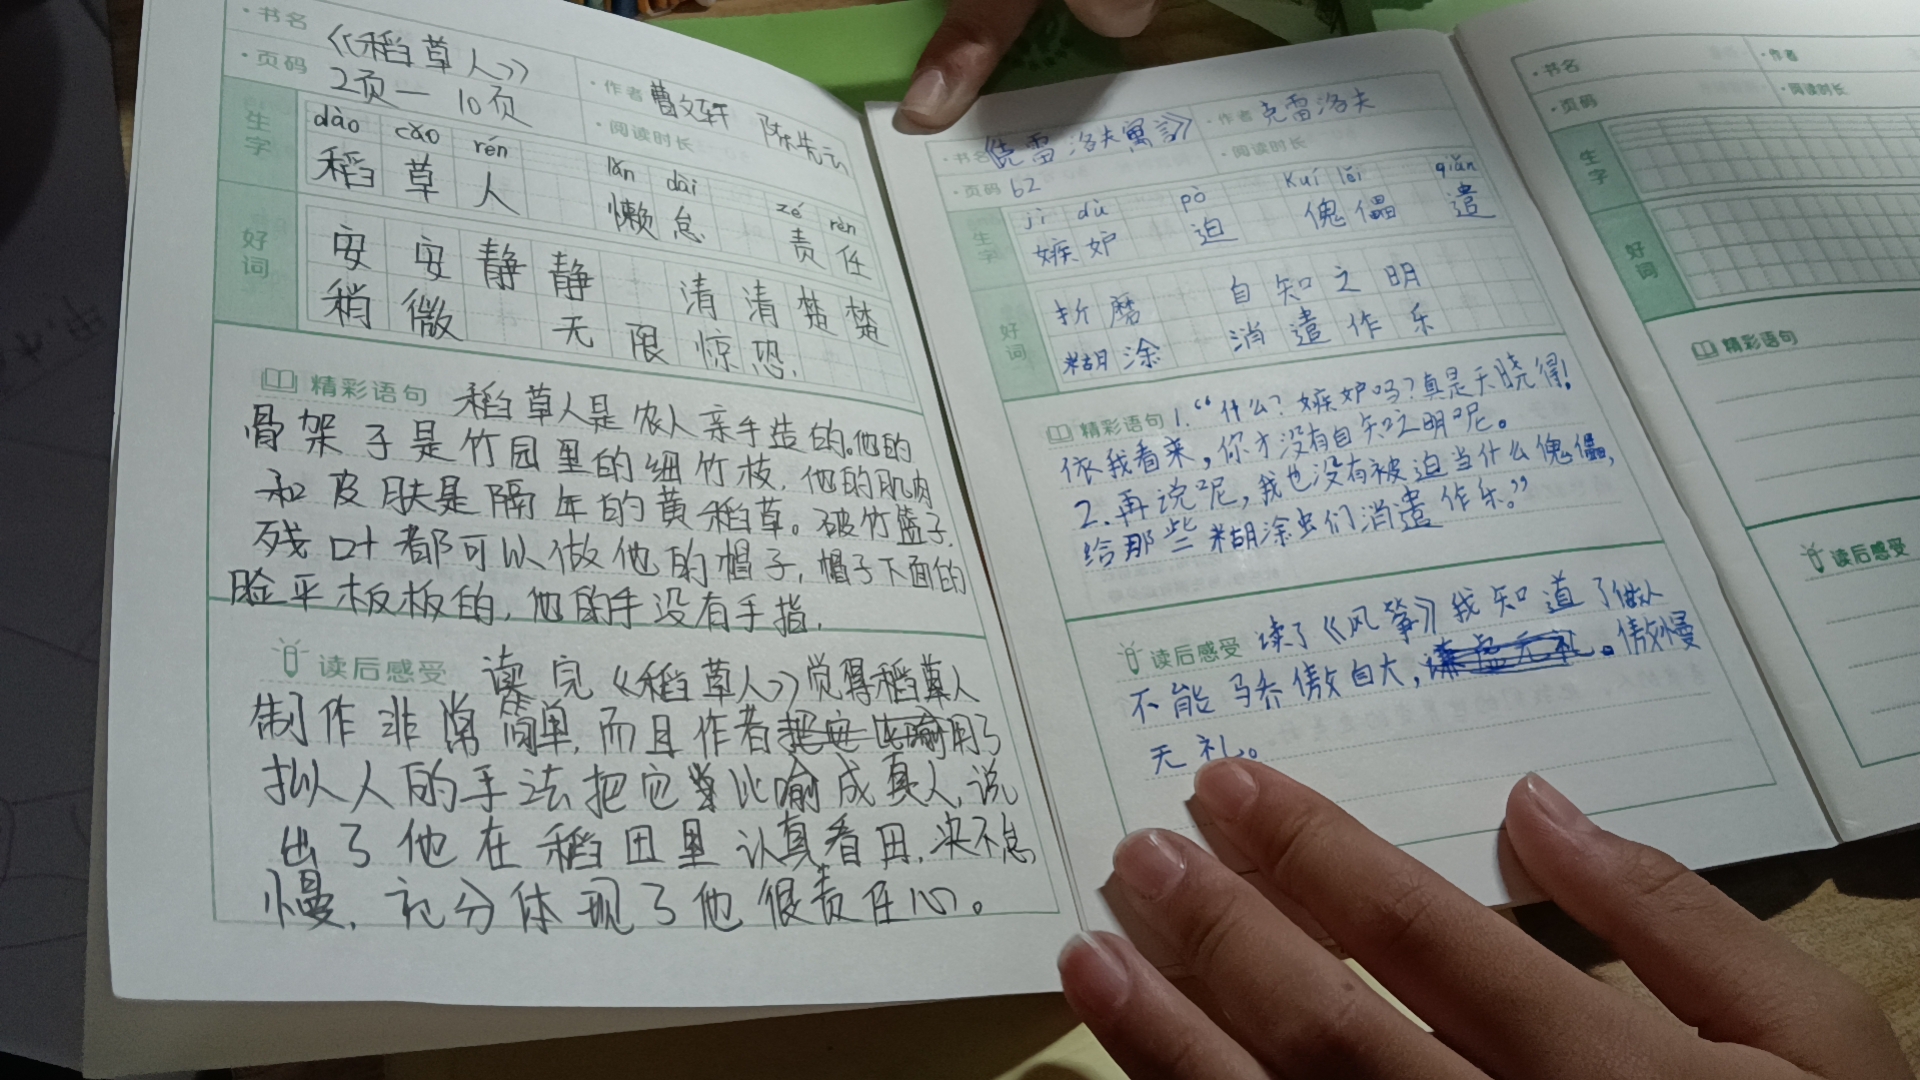 ·书名 《稻草人》
·作者 曹文轩 陈先云
·页码 2页— 10页
·阅读时长
生字
dào cǎo rén lǎn dài zé rèn
稻草人 懒怠 责任
好词
安安静静 清清楚楚
稍微 无限惊恐.
精彩语句 稻草人是农人亲手造的。他的
骨架子是竹园里的细竹枝,他的肌肉
和皮肤是隔年的黄稻草。破竹篮子.
残叶都可以做他的帽子,帽子下面的
脸平板板的,他的手没有手指.
读后感受 读完《稻草人》觉得稻草人
制作非常简单,而且作者把它比喻用了
拟人的手法把它当比喻成真人,说
出了他在稻田里认真看田,决不怠
慢,充分体现了他很责任心。
·书名 《克雷洛夫寓言》
·作者 克雷洛夫
·页码 62
·阅读时长
生字
jì dù pò kuí lěi qiǎn
嫉妒 迫 傀儡 遣
好词
折磨 自知之明
糊涂 消遣作乐
精彩语句 1.“什么?嫉妒吗?真是天晓得!
依我看来,你才没有自知之明呢。
2.再说呢,我也没有被迫当什么傀儡,
给那些糊涂虫们消遣作乐。”
读后感受 读了《风筝》我知道了做人
不能骄傲自大,。傲慢
无礼。
·书名
·作者
·页码
·阅读时长
生字
好词
精彩语句
读后感受